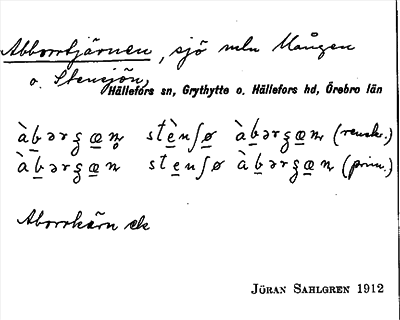 Abborrtjärnen, sjö mln Mången
o. Stensjön,
Hällefors sn, Grythytte o. Hällefors hd, Örebro län
àbərʒæn̥ stènʃø àbərʒæn (rensk.)
àbərʒæn stenʃø àbərʒæn (prim.)
Aborrkärn ek
JÖRAN SAHLGREN 1912